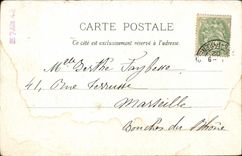 CARTE POSTALE
Ce côté est exclusivement réservé à l'adresse.
Mlle Berthe
41, Rue
Marseille
Bouches du Rhône